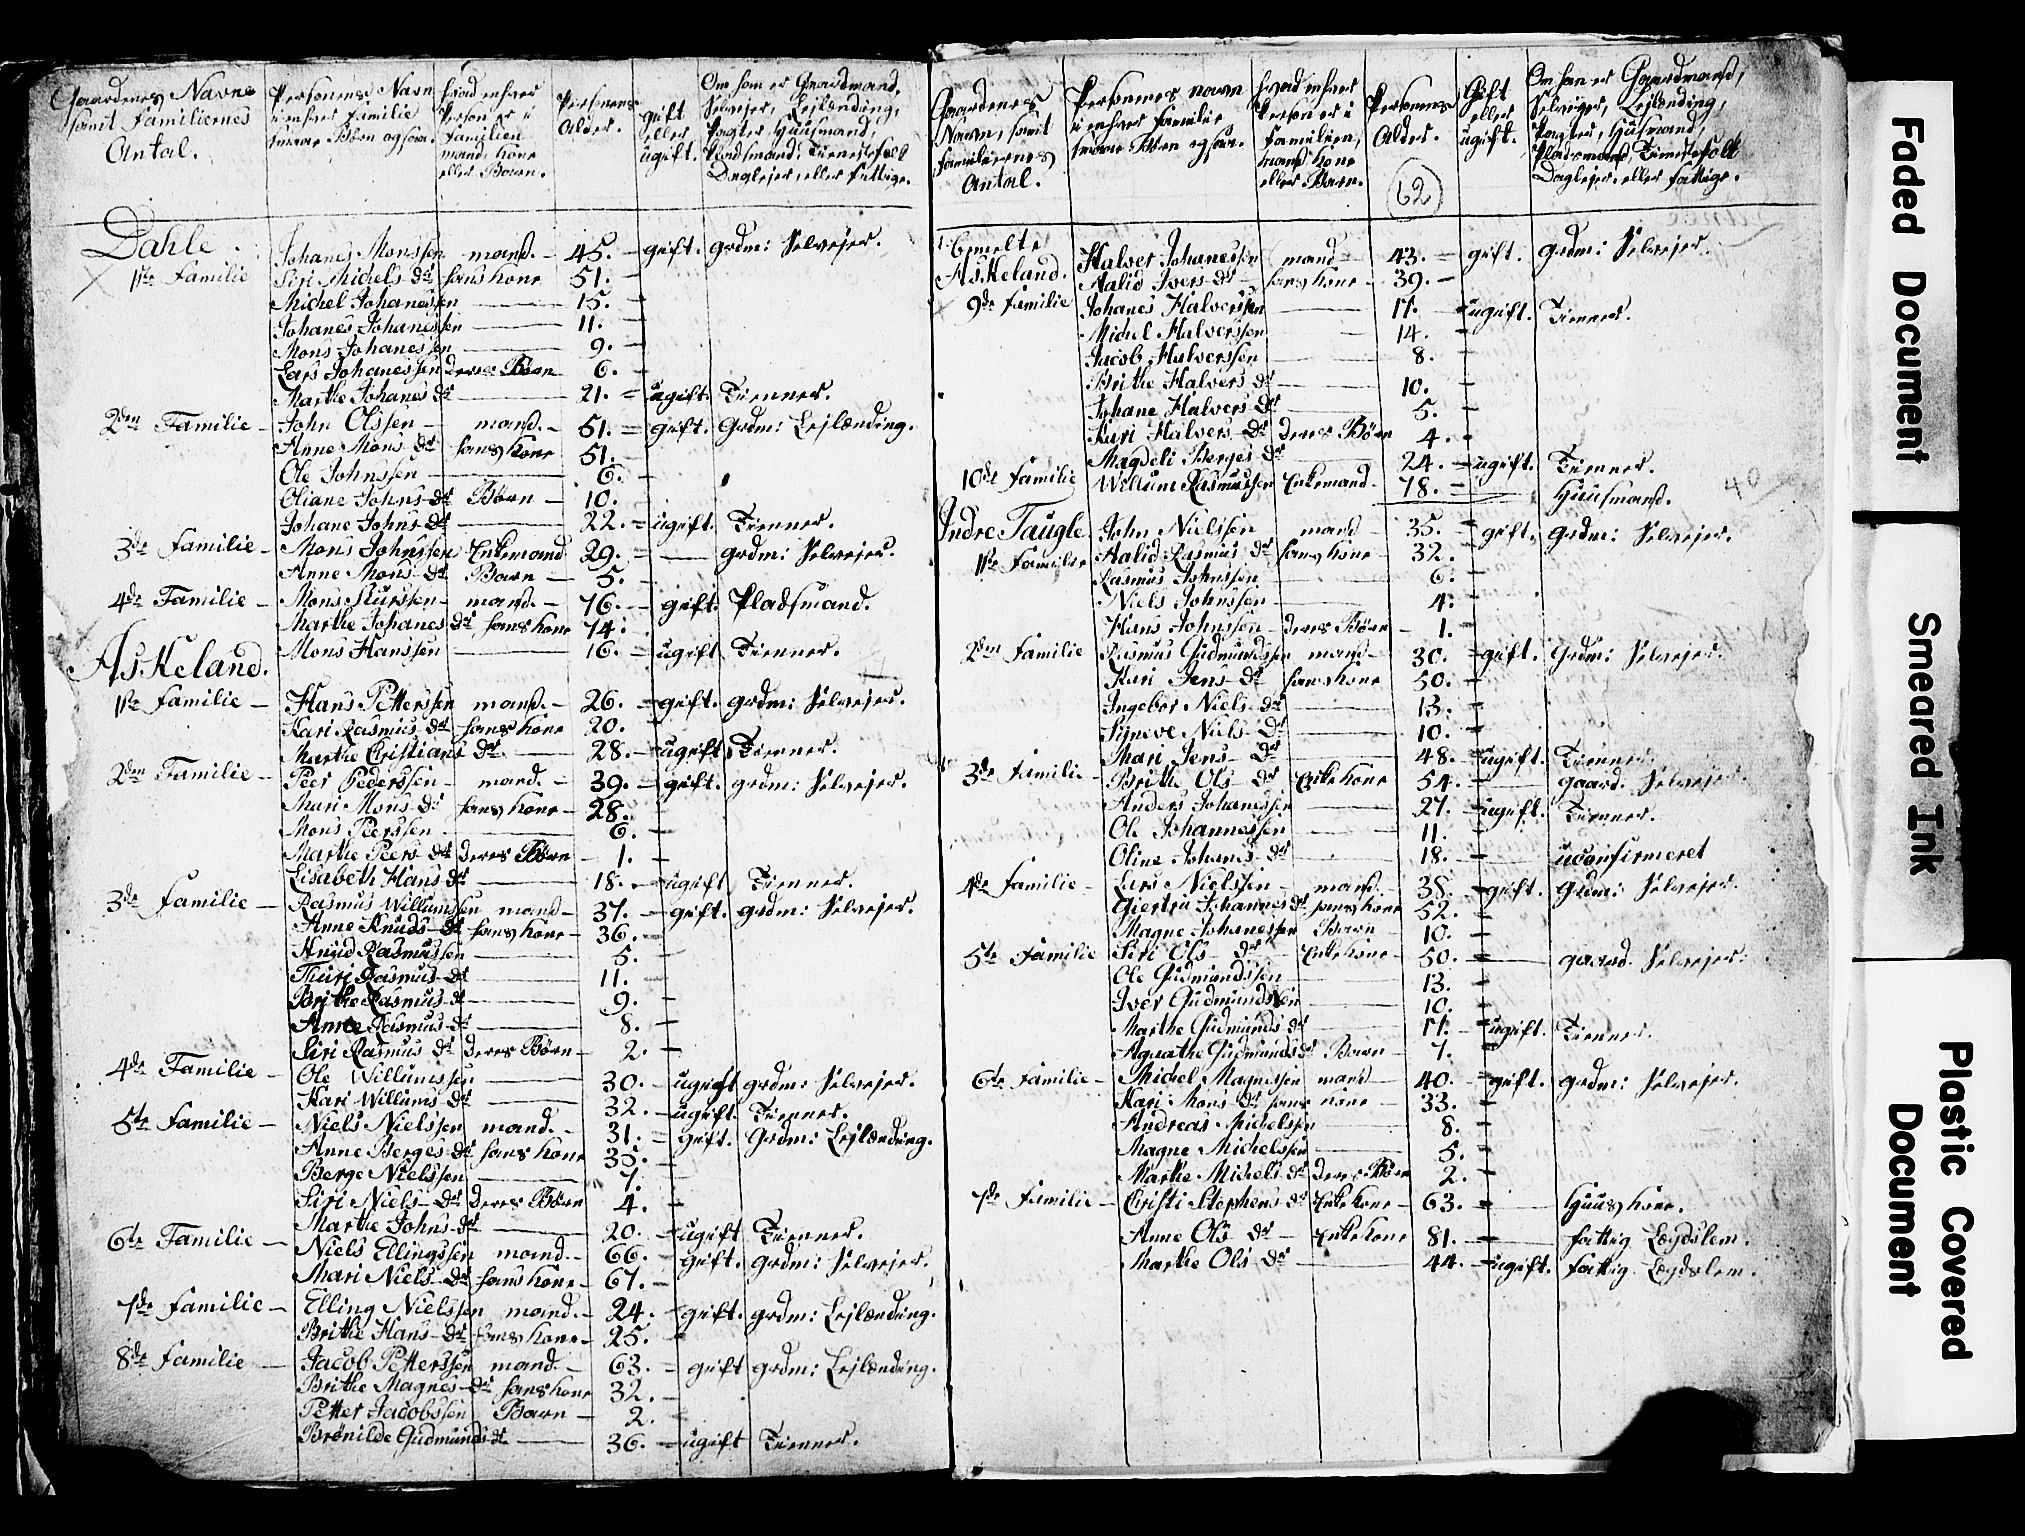 Gaardenes Navne samt Familiernes Antal.
Personens Navn i enhver familie smaae Børn ogsaa.
hvad enhver Person er i familien mand, kone eller Barn.
Personens Alder.
gift eller ugift.
Om han er Gaardmand, Selvejer, Lejlænding, Pagter, Huusmand, Pladsmand, Tienestefolk Daglejer, eller fattige.
Dahle.
1ste Familie Johanes Monssen mand. 45. gift. grdm: Selvejer.
Siri Michels Dr hans kone 51.
Michel Johanessen 15.
Johanes Johanessen 11.
Mons Johanessen 9.
Lars Johanessen deres Børn 6.
Marthe Johanes Dr 21. ugift. Tienner.
2den Familie John Olssen mand. 51. gift. Grdm: Lejlænding.
Anne Mons Dr hans kone 51.
Ole Johnssen 6.
Oliane Johns Dr Børn 10.
Johane Johns Dr 22. ugift. Tienner.
3die Familie Mons Johnssen Enkemand 29. grdm: Selvejer.
Anne Mons Dr Barn 5.
4de Familie Mons mand. 76. gift. Pladsmand.
Marthe Johanes Dr hans kone 74.
Mons Hanssen 16. ugift Tienner.
Askeland.
1ste Familie Hans Petterssen mand. 26. gift. grdm: Selvejer.
Kari Rasmus Dr hans kone 20.
Marthe Christians Dr. 28. ugift Tienner.
2den Familie Peer Pederssen mand. 39. gift. grdm: Selvejer.
Mari Mons Dr hans kone 28.
Mons Peerssen 6.
Marthe Peers Dr deres Børn 1.
Lisabeth Hans Dr 18. ugift Tienner.
3de Familie Rasmus Willumssen mand 37. gift. grdm: Selvejer.
Anne Knuds Dr hans kone 36.
Rasmussen 5.
Thuri Rasmus Dr 11.
Brithe Rasmus Dr 9.
Anne Rasmus Dr 8.
Siri Rasmus Dr deres Børn 2.
4de Familie Ole Willumssen 30. ugift grdm: Selvejer.
Kari Willums Dr 32. ugift. Tienner.
5te Familie Niels Nielssen mand. 31. gift. Grdm: Lejlænding.
Anne Berges Dr hans kone 35.
Berge Nielssen 7.
Siri Niels Dr deres Børn 4.
Marthe Johns Dr 20. ugift Tienner.
6te Familie Niels Ellingssen mand. 66. gift. grdm: Selvejer.
Mari Niels Dr hans kone 67.
7de Familie Elling Nielssen mand. 24. gift. grdm: Lejlænding.
Brithe Hans Dr hans kone 25.
8de Familie Jacob Petterssen mand. 63. gift grdm: Lejlænding.
Brithe Magnes Dr hans kone 32.
Petter Jacobssen Barn 2.
Brønilde Gudmunds Dr 36. ugift Tienner.
Gaardenes Navn, samt familiernes Antal.
Personernes navn i enhver familie smaae Børn ogsaa.
hvad enhver Person er i familien, mand kone eller Barn.
Personens Alder.
62
Gift eller ugift.
Om han er Gaardmand, Selvejer, Lejlænding, Pagter, Husmand, Pladsmand, Tienestefolk Daglejer, eller fattige.
Askeland. Halver Johanessen mand 43. gift. grdm: Selvejer.
Aalid Ivers Dr hans kone 39.
9de Familie Johanes Halverssen 17. ugift. Tienner.
Michel Halverssen 14.
Jacob Halverssen 8.
Brithe Halvers Dr 10.
Johane Halvers Dr 5.
Kari Halvers Dr deres Børn 4.
Magdeli Berges Dr 24. ugift. Tienner.
10de Familie Willum Rasmussen Enkemand 78. Huusmand.
40
Indre Taugle John Nielssen mand 35. gift. grdm: Selvejer.
1ste Familie Aalid Rasmus Dr hans kone 32.
Rasmus Johnssen 6.
Niels Johnssen 4.
Hans Johnssen deres Børn 1.
2den Familie Rasmus Gudmundssen mand 30. gift. Grdm: Selvejer.
Kari Jens Dr hans kone 50.
Ingebor Niels Dr 13.
Syneve Niels Dr 10.
Mari Jens Dr 48. ugift. Tienner.
3de Familie Brithe Ols Dr Enke kone 54. gaard. Selvejer.
Anders Johanessen 27. ugift. Tienner.
Ole Johannessen 11.
Oline Johanes Dr 18. uconfirmeret
4de Familie Lars Nielssen mand 38. gift. grdm: Selvejer.
Giertru Johannes Dr hans kone 52.
Magne Johanessen Barn 10.
5te Familie Siri Ols Dr Enke kone 50. gaard. Selvejer.
Ole Gudmundssen 13.
Iver Gudmundssen 10.
Marthe Gudmunds Dr 17. ugift. Tienner.
Agathe Gudmunds Dr Barn 7.
6te Familie Michel Magnessen mand 40. gift. grdm: Selvejer.
Kari Mons Dr hans kone 33.
Andreas Michelssen 8.
Magne Michelssen 5.
Marthe Michels Dr deres Børn 2.
7de Familie Christi Stephens Dr Enke kone 63. Huuskone.
Anne Ols Dr Enke kone 81. fattig Lægdslem.
Marthe Ols Dr 44. ugift. fattig Lægdslem.
Faded Document
Smeared Ink
Plastic Covered Document